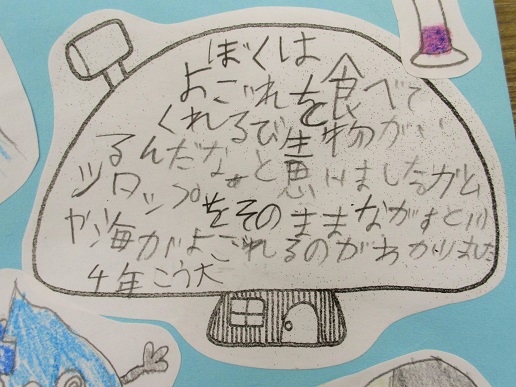 ぼくは
よごれを食べて
くれるび生物がい
るんだなぁと思いました。ガム
シロップをそのままながすと川
や海がよごれるのがわかりました
4年こう大